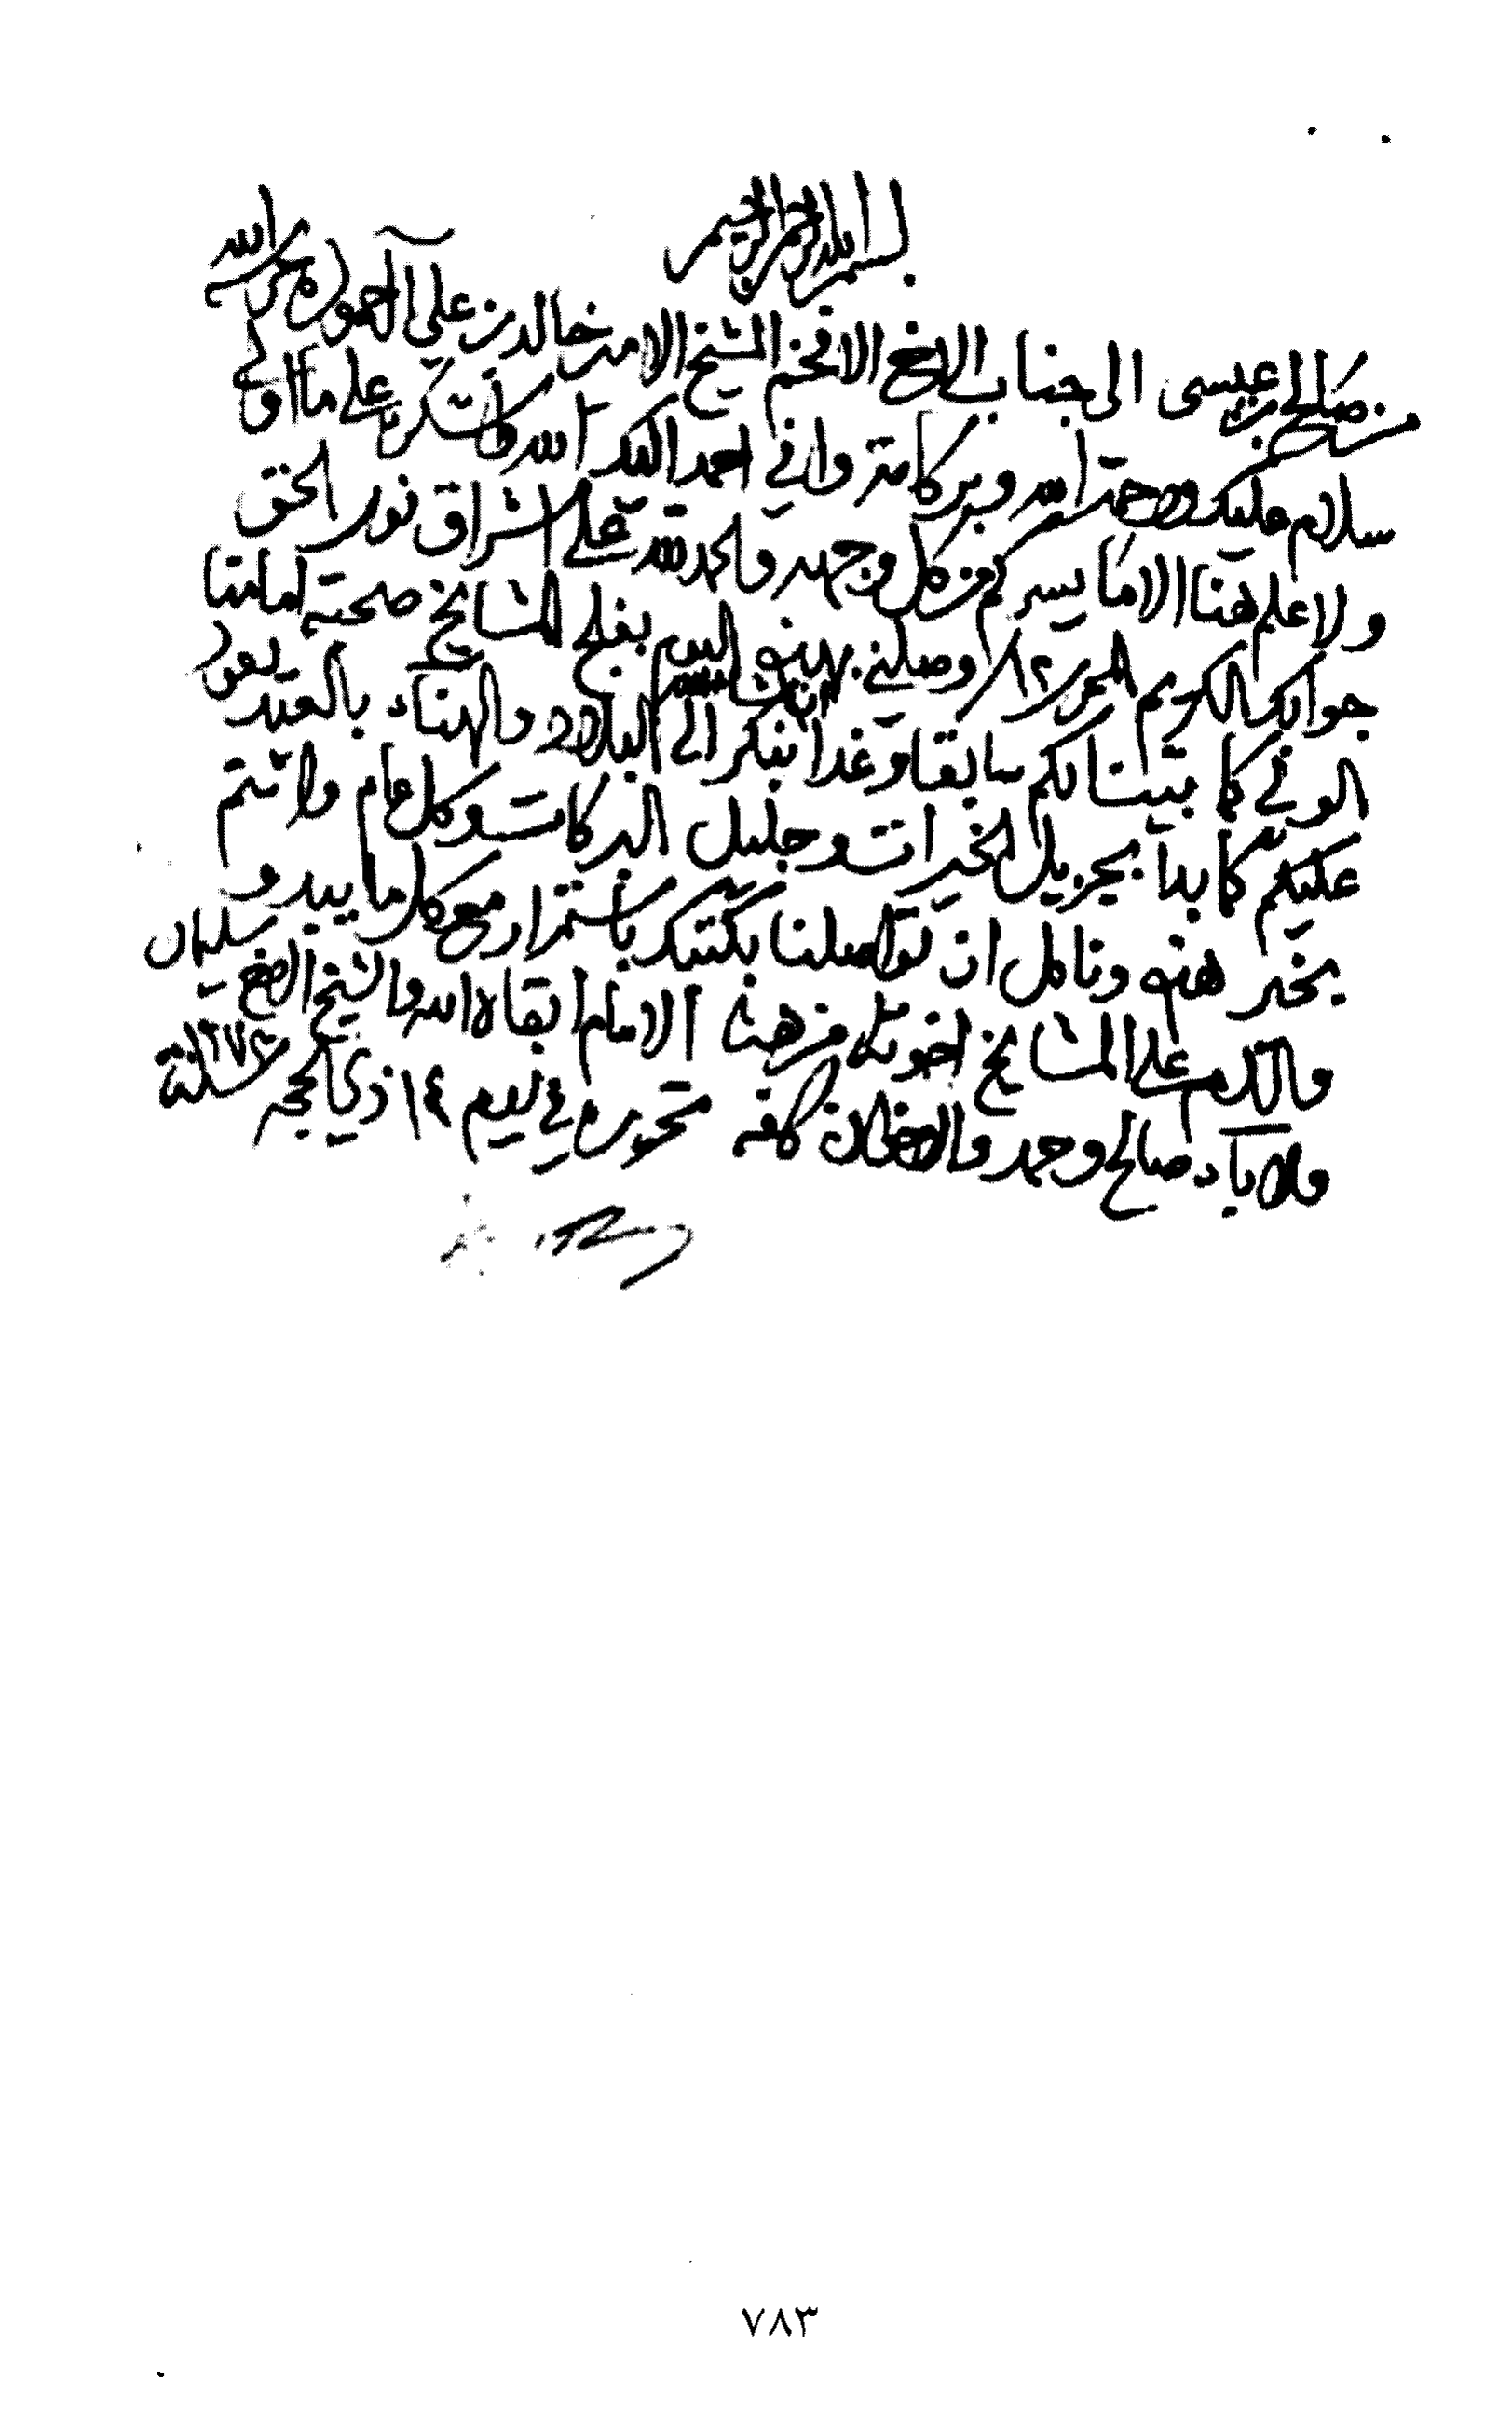 بسم الله الرحمن الرحيم
من صالح بن عيسى الى جناب الاخ الافخم الشيخ الامير خالد بن علي آل حمود حرسه الله
سلام عليك ورحمة الله وبركاته واني احمد اليك الله واشكره على ما اولى
ولا علم هنا الا ما يسركم من كل وجهه والحمد لله على اشراق نور الحق
جوابك الكريم المحرر ١٢ وصلني بهنو المشايخ صحبة امامنا
الوفي كما بينا لكم سابقا وغدا نبكر الى البلاد والهناء بالعيد يعود
عليكم كما بدا بجزيل الخيرات وجليل البركات وكل عام وانتم
بخير هنو ونامل ان تواصلنا بكتبك باستمرار مع كل ما يبدو
والسلام على المشايخ اخوتك من هنا الامام ابقاه الله والشيخ الاخ سليمان
والاباء صالح وحمد والاخوان كافه تحريره في ليوم ١٤ ذي الحجه سنة
٧٨٣